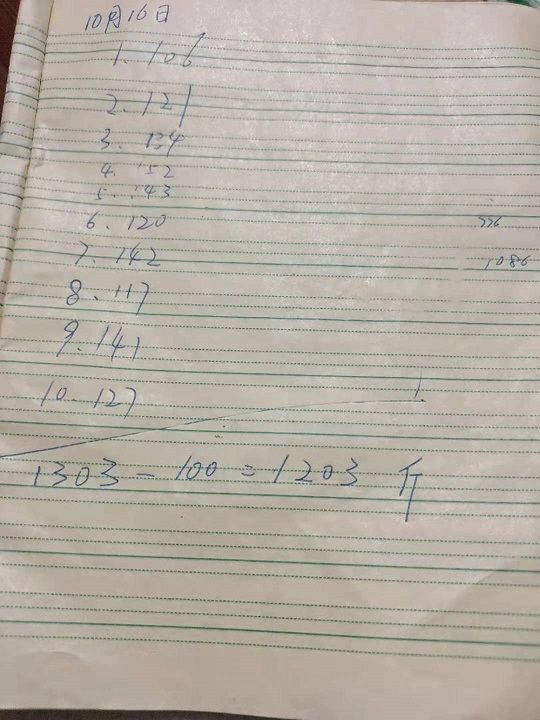 10月16日
1. 106
2. 121
3. 134
4. 152
5. 143
6. 120
776
7. 142
1086
8. 117
9. 141
10. 127
1303-100=1203 斤